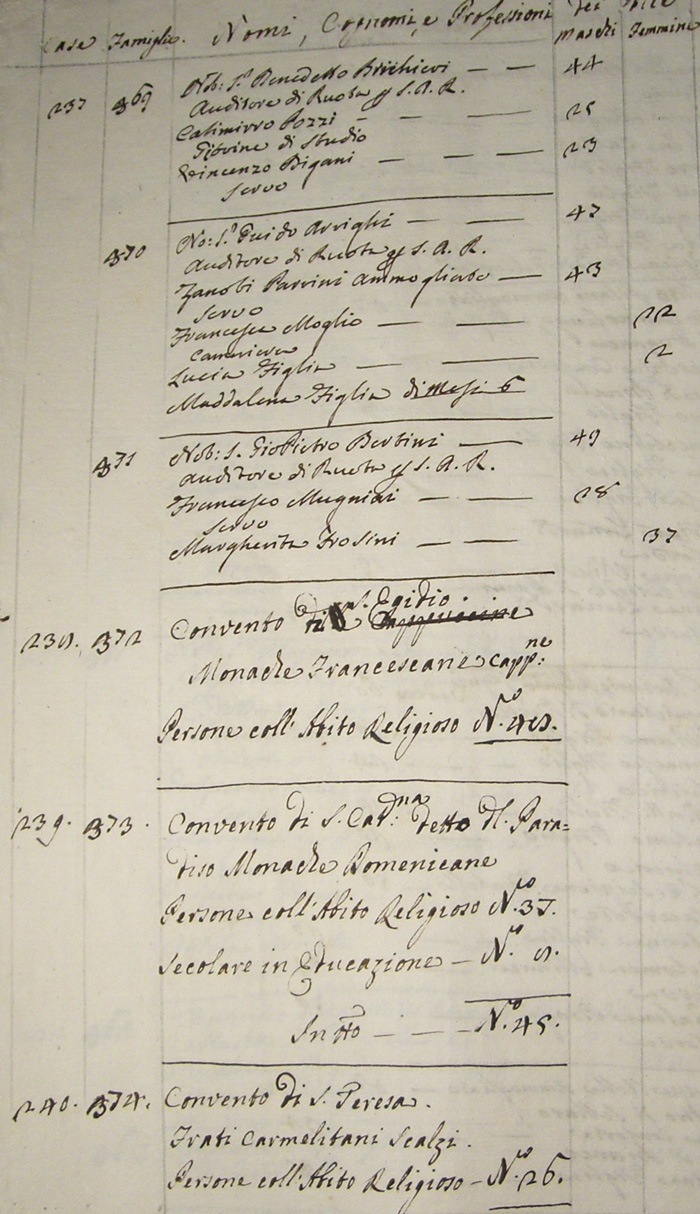 Case Famiglie. Nomi, Cognomi, e Professioni dei Maschi delle Femmine
237 369 Nob: S.r Benedetto Brichieri — — 44
Auditore di Ruota p S. A. R.
Casimirro Pozzi — — — 25
Giovine di Studio
Vincenzo Bigani — — — 23
Servo
370 No: S.r Guido Arrighi — — 47
Auditore di Ruota p S. A. R.
Zanobi Parrini Ammogliato — 43
Servo
Francesca Moglie — — 22
Cameriera
Lucia Figlia — — 2
Maddalena Figlia di Mesi 6
371 Nob: S. Gio Pietro Bertini — 49
Auditore di Ruota p S. A. R.
Francesco Mugniai — — 28
Servo
Margherita Frosini — — 37
238. 372 Convento di S. Egidio.
Cappuccine
Monache Francescane Capp:ne
Persone coll' Abito Religioso N.o 40.
239. 373. Convento di S. Cat:na detto dl. Para=
diso Monache Domenicane
Persone coll' Abito Religioso N.o 37.
Secolare in Educazione — N.o 8.
In tto — — — N.o 45.
240. 374. Convento di S. Teresa.
Frati Carmelitani Scalzi.
Persone coll' Abito Religioso — N.o 26.